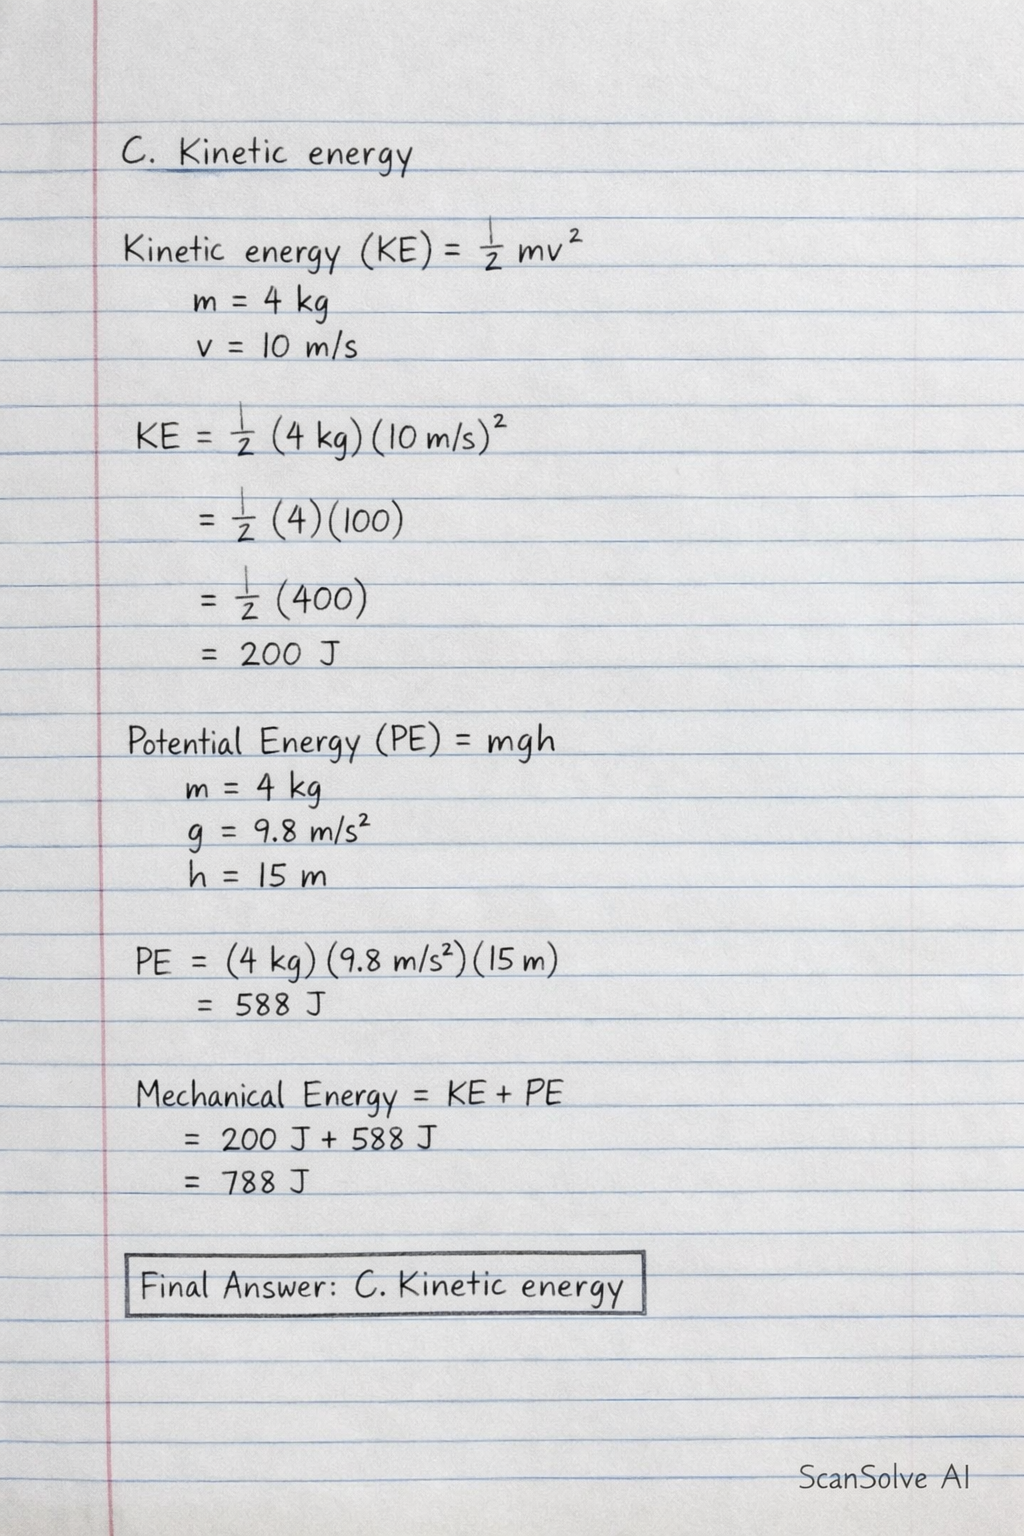 C. Kinetic energy
Kinetic energy (KE) = 1/2 mv²
m = 4 kg
v = 10 m/s
KE = 1/2 (4 kg)(10 m/s)²
= 1/2 (4)(100)
= 1/2 (400)
= 200 J
Potential Energy (PE) = mgh
m = 4 kg
g = 9.8 m/s²
h = 15 m
PE = (4 kg)(9.8 m/s²)(15 m)
= 588 J
Mechanical Energy = KE + PE
= 200 J + 588 J
= 788 J
Final Answer: C. Kinetic energy
ScanSolve AI